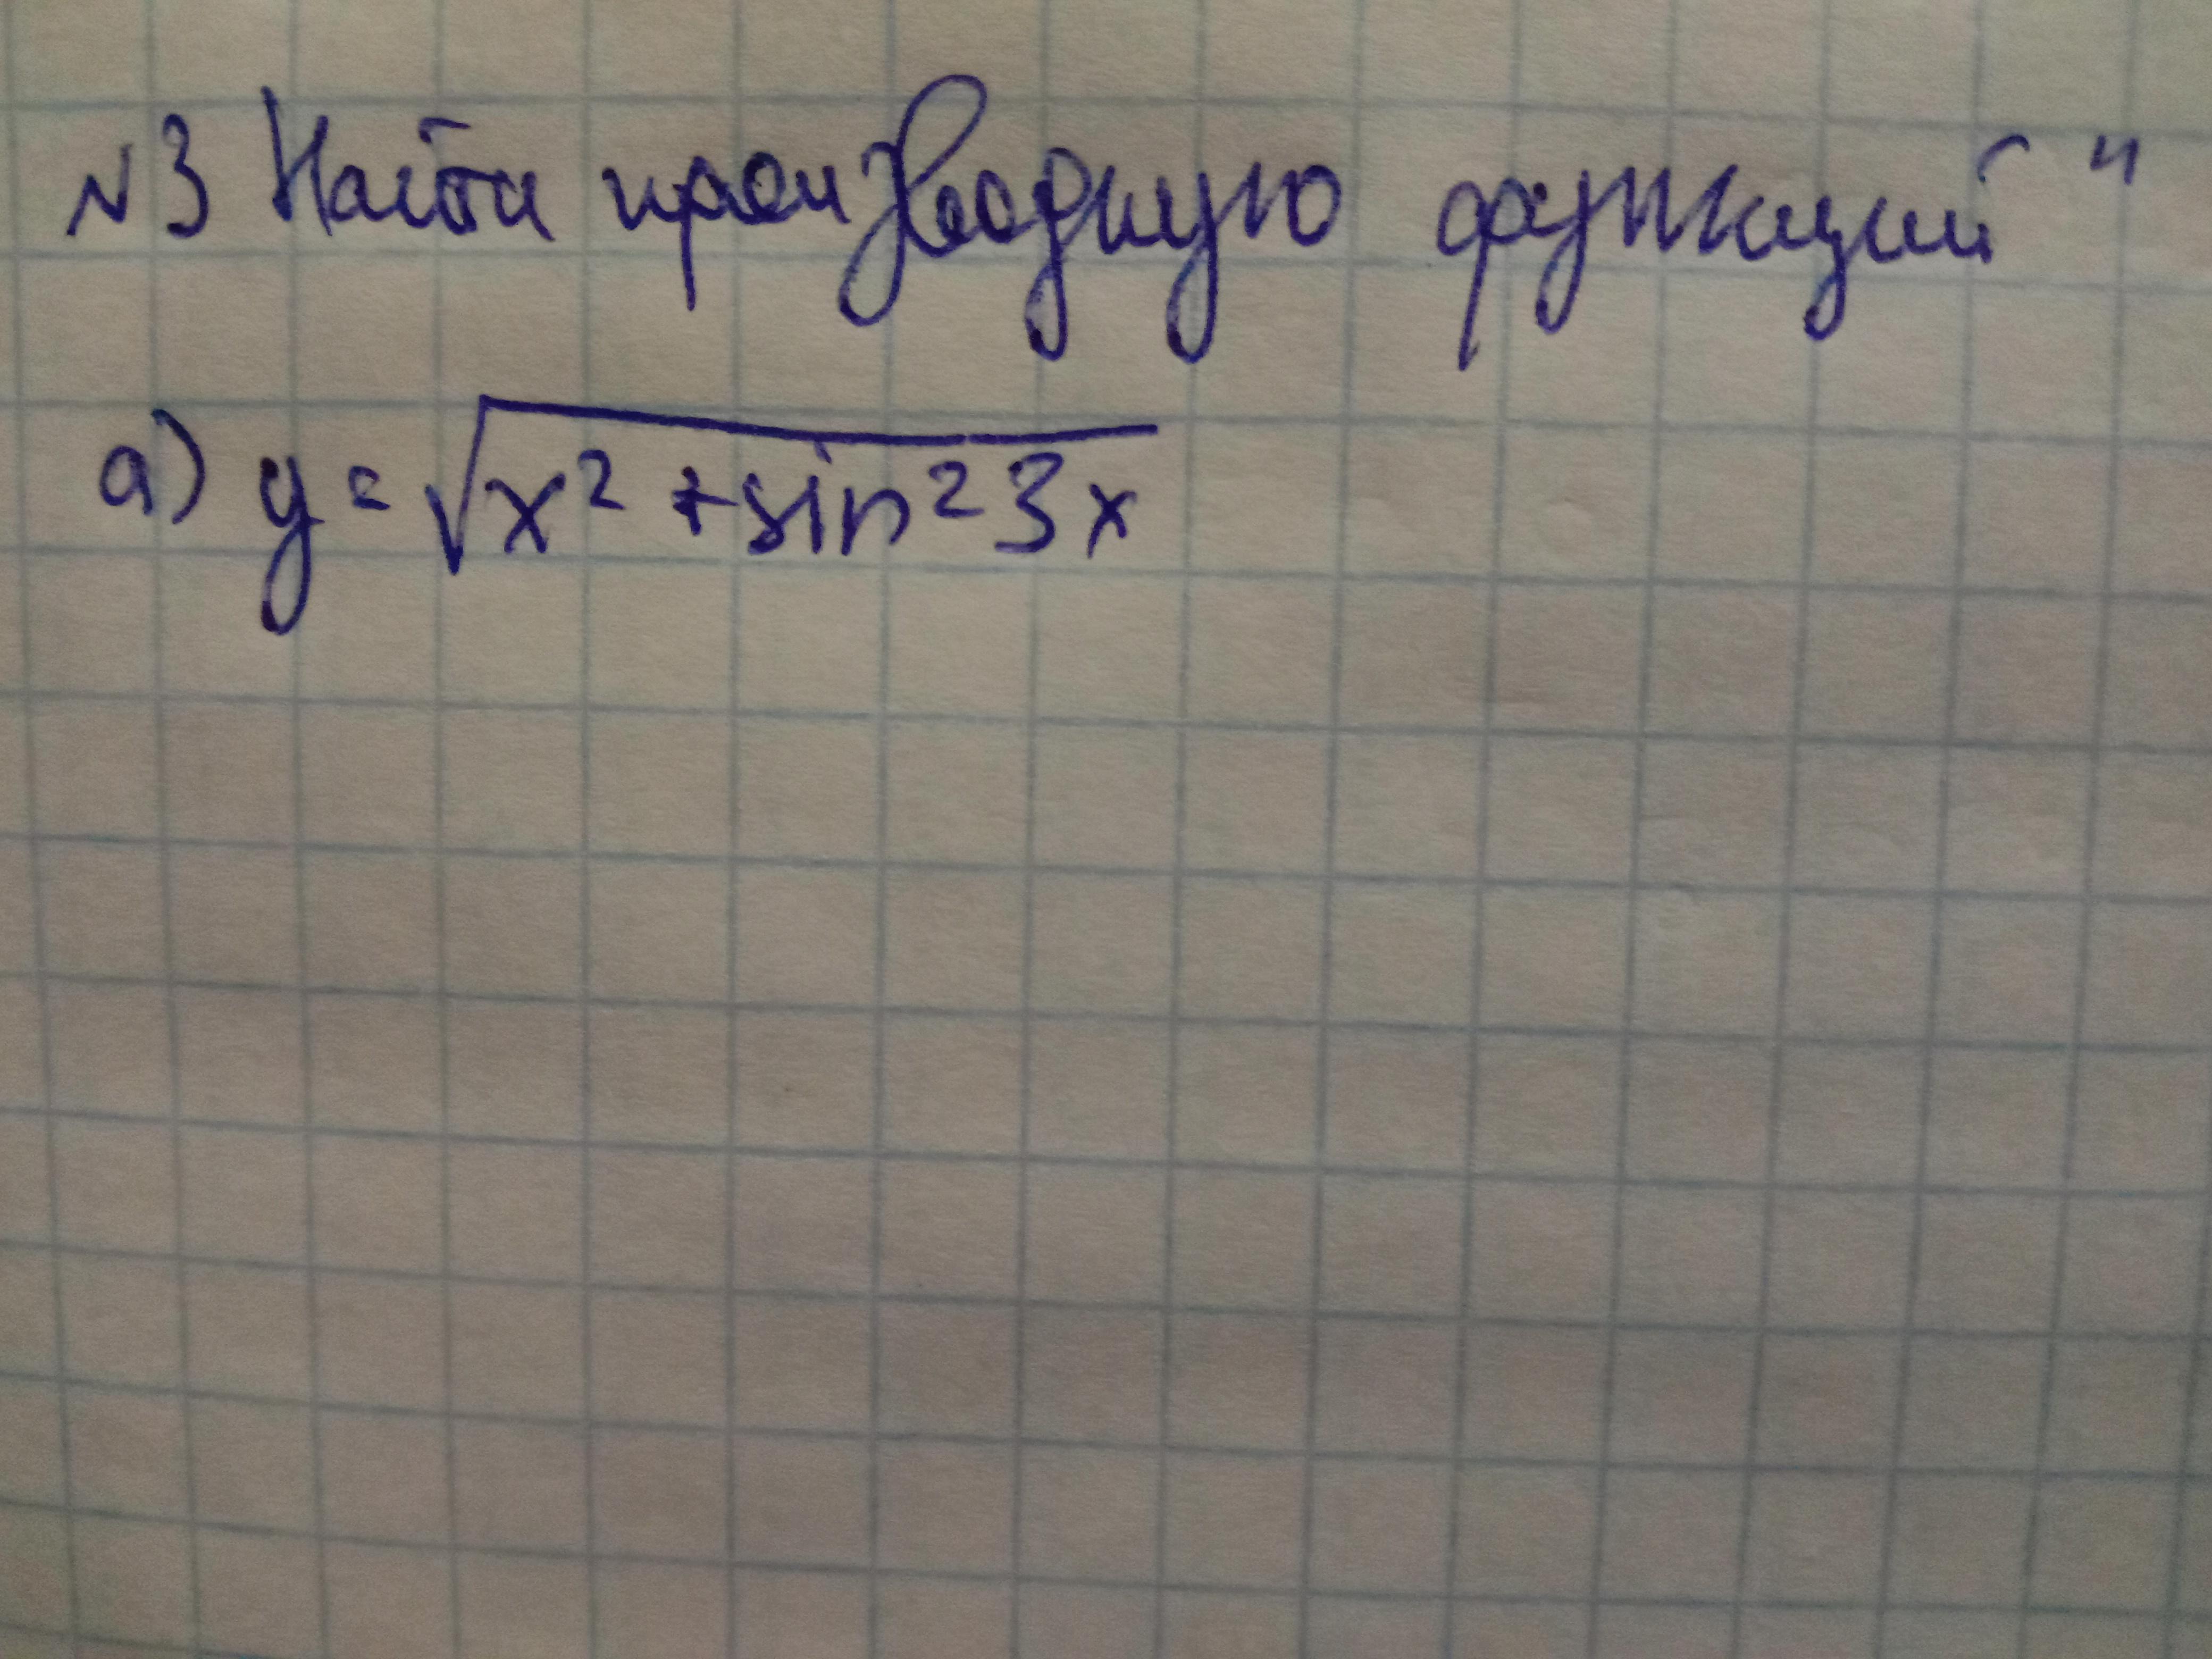 №3 Найти производную функций "
а) y = √x² + sin² 3x